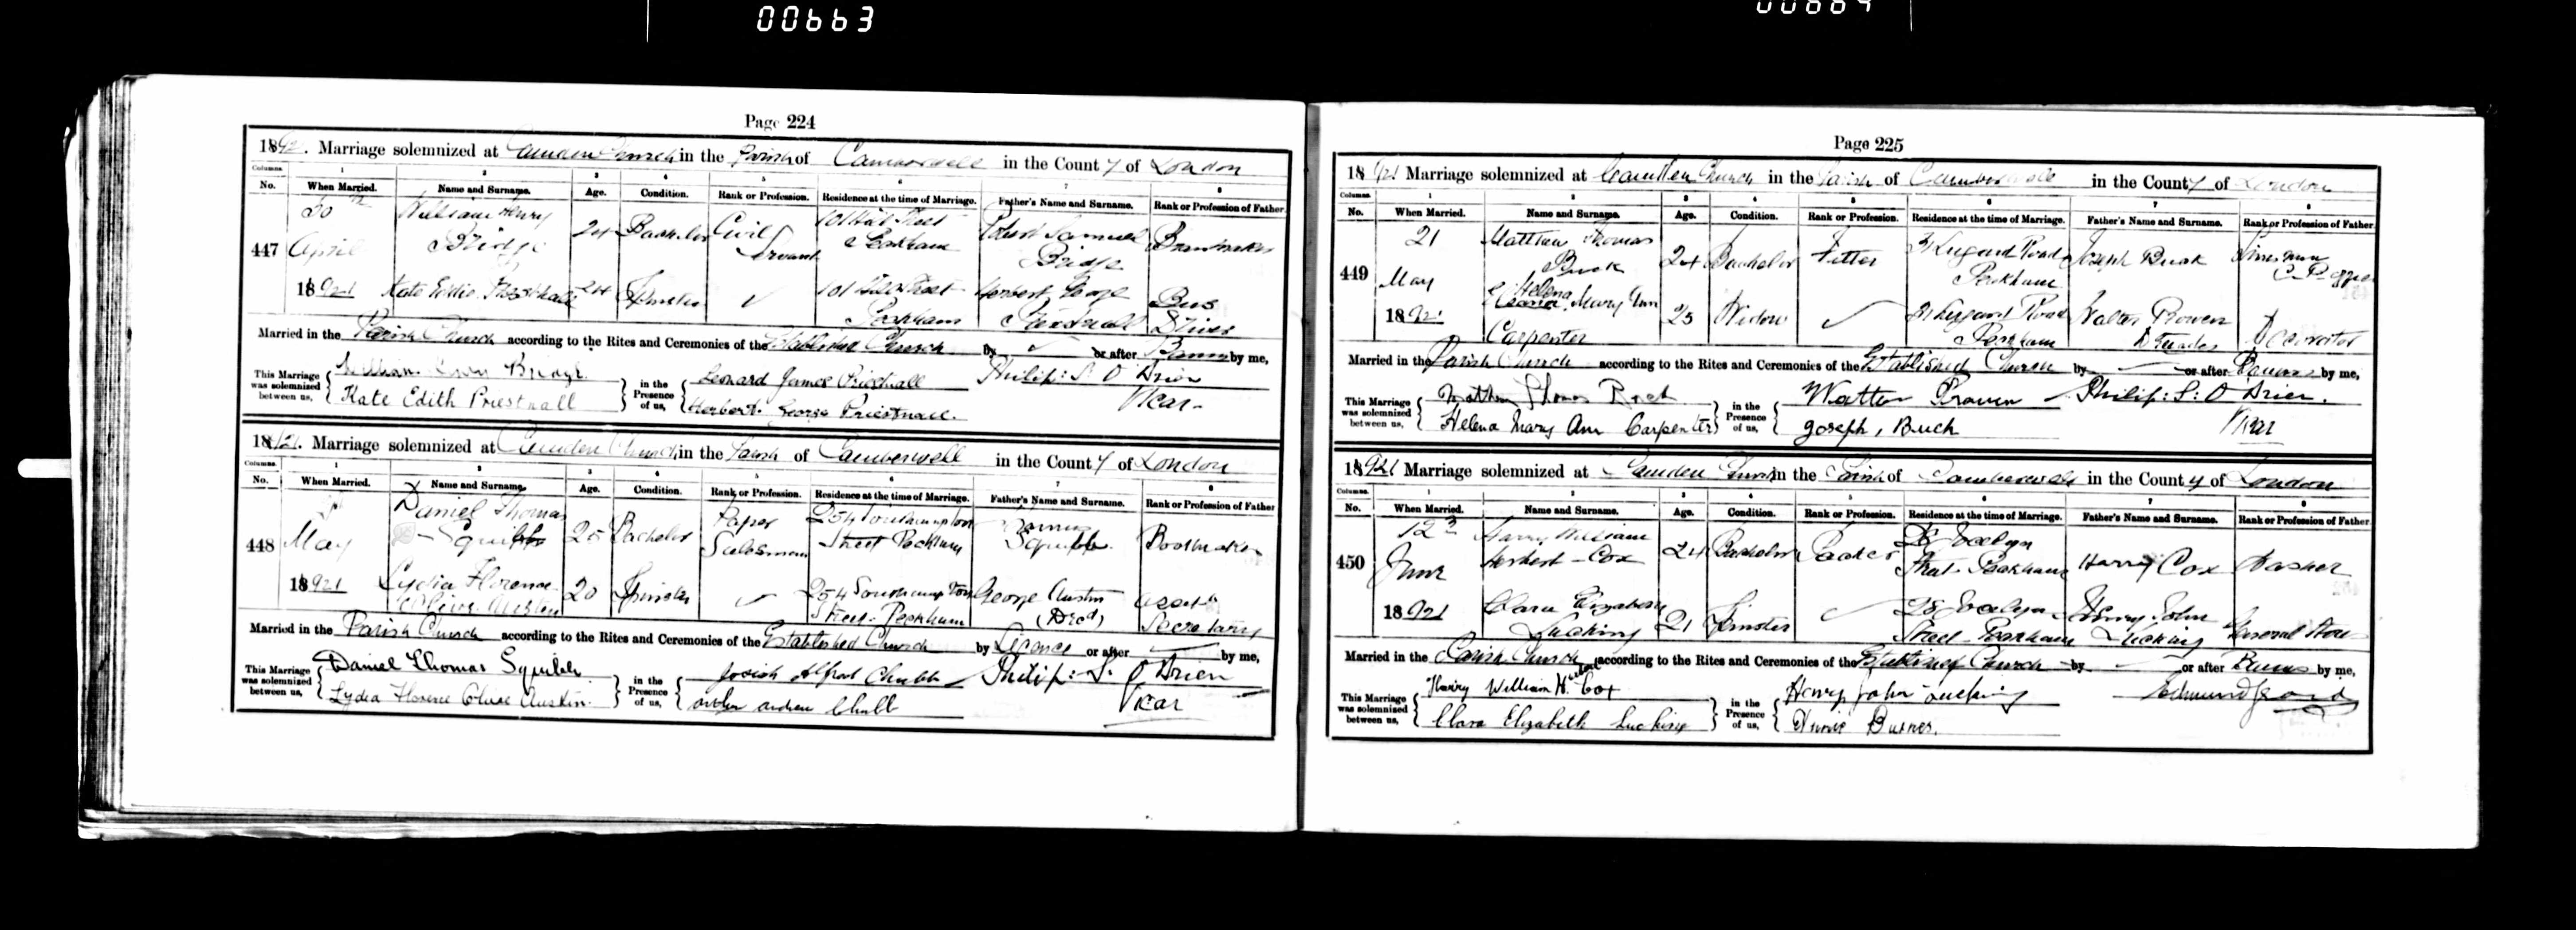 00663
00664
Page 224
1921. Marriage solemnized at Camden Church in the Parish of Camberwell in the County of London
Columns. 1 2 3 4 5 6 7 8
No. When Married. Name and Surname. Age. Condition. Rank or Profession. Residence at the time of Marriage. Father's Name and Surname. Rank or Profession of Father.
447
30th April 1921
William Henry Bridge 24 Bachelor Civil Servant 101 Street Peckham Robert Samuel Bridge
Kate Edith Priestnall 24 Spinster 101 Street Peckham Herbert George Priestnall Bus Driver
Married in the Parish Church according to the Rites and Ceremonies of the Established Church by or after Banns by me,
This Marriage was solemnized between us, William Henry Bridge
Kate Edith Priestnall
in the Presence of us, Leonard James Priestnall
Herbert George Priestnall.
Philip: S. O Brien
Vicar
1921. Marriage solemnized at Camden Church in the Parish of Camberwell in the County of London
Columns. 1 2 3 4 5 6 7 8
No. When Married. Name and Surname. Age. Condition. Rank or Profession. Residence at the time of Marriage. Father's Name and Surname. Rank or Profession of Father
448
May 1921
Daniel Thomas Squibb 25 Bachelor Paper Salesman 254 Southampton Street Peckham Squibb
Lydia Florence Olive Austin 20 Spinster 254 Southampton Street Peckham George Austin (Decd) Asst Secretary
Married in the Parish Church according to the Rites and Ceremonies of the Established Church by Licence or after by me,
This Marriage was solemnized between us, Daniel Thomas Squibb
Lydia Florence Olive Austin.
in the Presence of us, Josiah Alfred Chubb
andrew Chubb
Philip: S. O Brien
Vicar
Page 225
1921 Marriage solemnized at Camden Church in the Parish of Camberwell in the County of London
Columns. 1 2 3 4 5 6 7 8
No. When Married. Name and Surname. Age. Condition. Rank or Profession. Residence at the time of Marriage. Father's Name and Surname. Rank or Profession of Father.
449
21 May 1921
Matthew Thomas Buck 24 Bachelor Fitter 31 Lugard Road Peckham Joseph Buck
Helena Mary Ann Carpenter 25 Widow 31 Lugard Road Peckham Walter Decorator
Married in the Parish Church according to the Rites and Ceremonies of the Established Church by or after Banns by me,
This Marriage was solemnized between us, Matthew Thomas Buck
Helena Mary Ann Carpenter
in the Presence of us, Walter
Joseph, Buck
Philip: S: O Brien.
Vicar
1921 Marriage solemnized at Camden Church in the Parish of Camberwell in the County of London
Columns. 1 2 3 4 5 6 7 8
No. When Married. Name and Surname. Age. Condition. Rank or Profession. Residence at the time of Marriage. Father's Name and Surname. Rank or Profession of Father.
450
12 June 1921
Harry William Herbert Cox 24 Bachelor Packer 28 Evelyn Street Peckham Harry Cox
Clara Elizabeth Lucking 21 Spinster 28 Evelyn Street Peckham Henry John Lucking General
Married in the Parish Church according to the Rites and Ceremonies of the Established Church by or after Banns by me,
This Marriage was solemnized between us, Harry William H. Cox
Clara Elizabeth Lucking
in the Presence of us, Henry John Lucking
Annie
Edmund